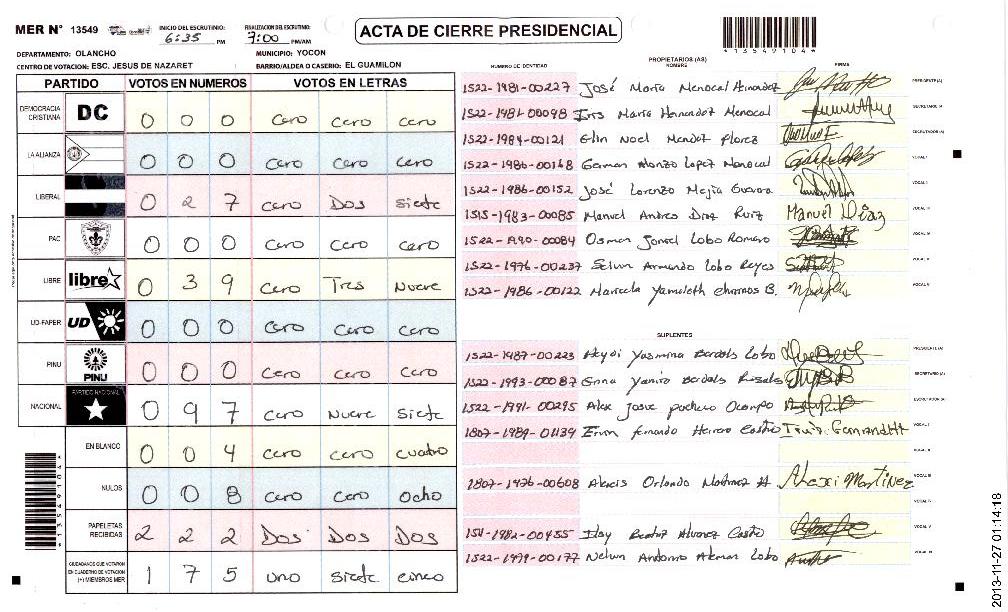 MER N° 13549
INICIO DEL ESCRUTINIO: 6:35 PM
FINALIZACION DEL ESCRUTINIO: 7:00 PM/AM
ACTA DE CIERRE PRESIDENCIAL
*13549104*
DEPARTAMENTO: OLANCHO
MUNICIPIO: YOCON
CENTRO DE VOTACION: ESC. JESUS DE NAZARET
BARRIO/ALDEA O CASERIO: EL GUAMILON
PARTIDO VOTOS EN NUMEROS VOTOS EN LETRAS
DEMOCRACIA CRISTIANA DC 0 0 0 cero cero cero
LA ALIANZA 0 0 0 cero cero cero
LIBERAL 0 2 7 cero Dos siete
PAC 0 0 0 cero cero cero
LIBRE libre 0 3 9 cero Tres Nueve
UD-FAPER UD 0 0 0 cero cero cero
PINU PINU 0 0 0 cero cero cero
NACIONAL PARTIDO NACIONAL 0 9 7 cero Nueve siete
EN BLANCO 0 0 4 cero cero cuatro
NULOS 0 0 8 cero cero ocho
PAPELETAS RECIBIDAS 2 2 2 Dos Dos Dos
CIUDADANOS QUE VOTARON EN CUADERNO DE VOTACION (+) MIEMBROS MER 1 7 5 uno siete cinco
*13549104*
PROPIETARIOS (AS)
NUMERO DE IDENTIDAD NOMBRE FIRMA
1522-1981-00227 José María Menocal Hernandez PRESIDENTE(A)
1522-1981-00098 Iris María Hernandez Menocal SECRETARIO(A)
1522-1984-00121 Elin Noel Mendez florez ESCRUTADOR(A)
1522-1986-00168 German Alonzo Lopez Menocal VOCAL I
1522-1986-00152 José Lorenzo Mejia Guevara VOCAL II
1515-1983-00085 Manuel Andres Diaz Ruiz Manuel Diaz VOCAL III
1522-1990-00084 Osman Joniel Lobo Romero VOCAL IV
1522-1976-00237 Selvin Armando Lobo Reyes VOCAL V
1522-1986-00122 Maricela Yamileth B.
SUPLENTES
1522-1987-00223 Heydi Yasmina Bardales Lobo PRESIDENTE(A)
1522-1993-00087 Enna Yamira Bardales Rosales SECRETARIO(A)
1522-1991-00295 Alex Josue pacheco Ocampo ESCRUTADOR(A)
1807-1989-01139 Ervin fernando Herrera Castro VOCAL I
VOCAL II
1807-1976-00608 Alexis Orlando Martinez A Alexi Martinez VOCAL III
VOCAL IV
1511-1982-00455 Ilsy Beatriz Alvarez Castro VOCAL V
1522-1979-00177 Nelvin Antonio Aleman Lobo
2013-11-27 01:14:18